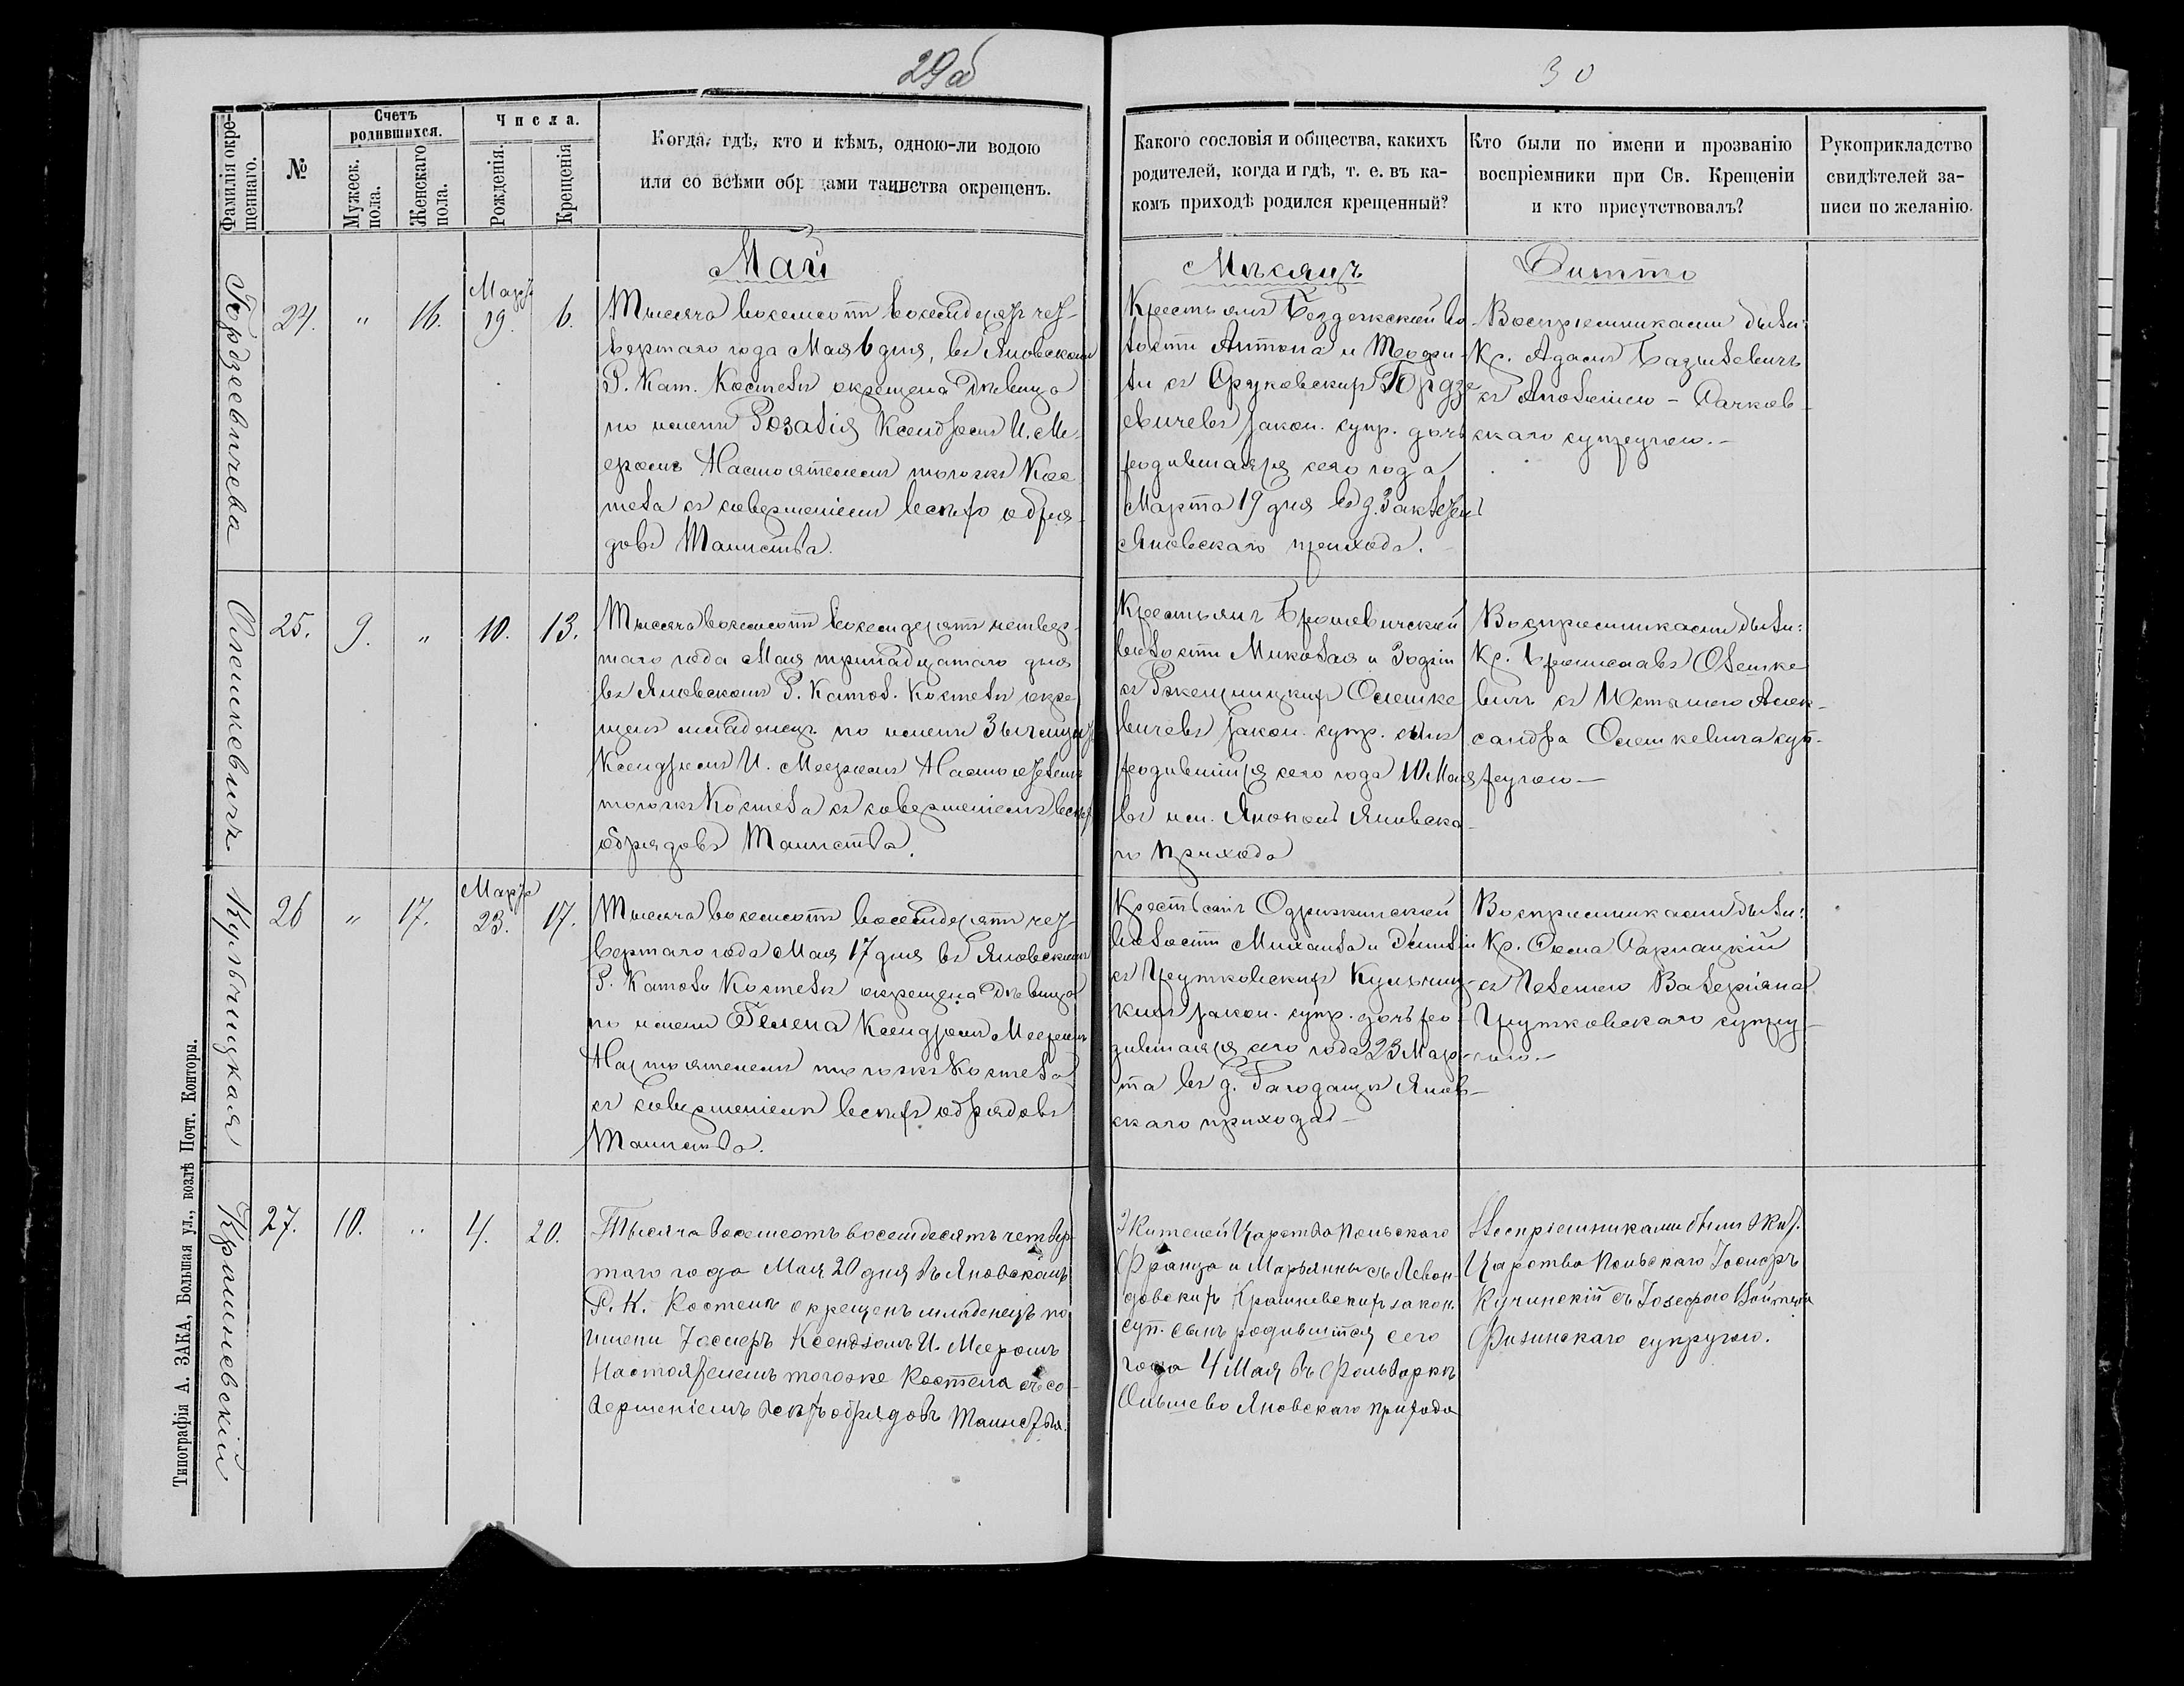 29об
30
Фамилія окре-
щеннаго.
№
Счетъ
родившихся.
Мужеск.
пола.
Женскаго
пола.
Числа.
Рожденія.
Крещенія
Когда, гдѣ, кто и кѣмъ, одною-ли водою
или со всѣми обрядами таинства окрещенъ.
Какого сословія и общества, какихъ
родителей, когда и гдѣ, т. е. въ ка-
комъ приходѣ родился крещенный?
Кто были по имени и прозванію
воспріемники при Св. Крещеніи
и кто присутствовалъ?
Рукоприкладство
свидѣтелей за-
писи по желанію.
Май
Мѣсяцъ
Дитто
Гордзеевичева
24. " 16. Март 19. 6.
Тысяча восемсот восемдесят чет-
вертаго года Мая 6 дня, въ Яновскомъ
Р. Кат. Костелѣ окрещена Дѣвица
по имени Розалія Ксендзомъ И. Ме-
еромъ Настоятелемъ тогожъ Кос
тела съ совершеніемъ всѣхъ обря-
довъ Таинства.
Крестьянъ Бездежской во
лости Антона и Теофи-
ли съ Гордзе
евичевъ закон. супр. дочь
родившаяся сего года
Марта 19 дня въ д.
Яновскаго прихода.
Воспріемниками были:
Кр. Адамъ Базилевичъ
съ Аполоніею -
скаго супругою.-
Олешкевичъ
25. 9. " 10. 13.
Тысяча восемсотъ восемдесятъ четвер-
таго года Мая тринадцатаго дня
въ Яновскомъ Р. Катол. Костелѣ окре
щенъ младенецъ по имени
Ксендзомъ И. Мееромъ Настоятелемъ
тогожъ Костела съ совершеніемъ всѣхъ
обрядовъ Таинства.
Крестьянъ Брошевичской
волости Миколая и Зофіи
съ Олешке
вичевъ закон. супр. сынъ
родившійся сего года 10 Мая
въ им. Яновска-
го Прихода
Воспріемниками были:
Кр. Брониславъ Олешке
вичъ съ Алек-
сандра Олешкевича суп-
ругою -
Кульчицкая
26 " 17. Март 23. 17.
Тысяча восемсотъ восемдесятъ чет
вертаго года Мая 17 дня въ Яновскомъ
Р. Католи Костелѣ окрещена Дѣвица
по имени Гелена Ксендзомъ Мееромъ
Настоятелемъ тогожъ Костела
съ совершеніемъ всѣхъ обрядовъ
Таинства.
Крестьянъ Одрижинской
волости Михаила и
съ Цеутковскихъ Кульчиц
кихъ закон. супр. дочь ро-
дившаяся сего года 23 Мар-
та въ д. Янов-
скаго прихода -
Воспріемниками были:
Кр. Сарнацкій
съ Валеріана
Цеутковскаго супру-
гою.-
Крашневскій
27. 10. " 4. 20.
Тысяча восемсотъ восемдесятъ четвер-
таго года Мая 20 дня въ Яновскомъ
Р. К. Костелѣ окрещенъ младенецъ по
имени Іосифъ Ксендзомъ И. Мееромъ
Настоятелемъ тогоже Костела съ со-
вершеніемъ всѣхъ обрядовъ Таинства.
Жителей Царства Польскаго
Франца и Марьянны съ Левон-
довскихъ Крашневскихъ закон.
суп. сынъ родившійся сего
года 4 Мая въ Фольваркѣ
Яновскаго прихода
Воспріемниками были Жит.
Царства Польскаго Іосифъ
Кучинскій съ Іозефою
супругою.
Типографія А. ЗАКА, Большая ул., возлѣ Почт. Конторы.